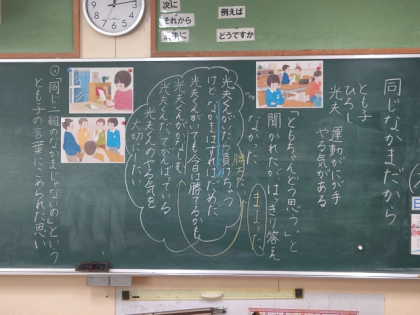 次に
それから
最後に
例えば
どうですか
同じなかまだから
とも子
ひろし
光夫 運動がにが手
やる気がある
「ともちゃんどう思う。」と
聞かれたがはっきり答え
なかった
まよった
勝ちたい
光夫くんがいたら負けちゃう
けどなかまはずれはだめだ
光夫くんがいても今日は勝てるかも
光夫くんだってがんばっている
⦿「同じ一組のなかまじゃないの」という
とも子の言葉にこめられた思い